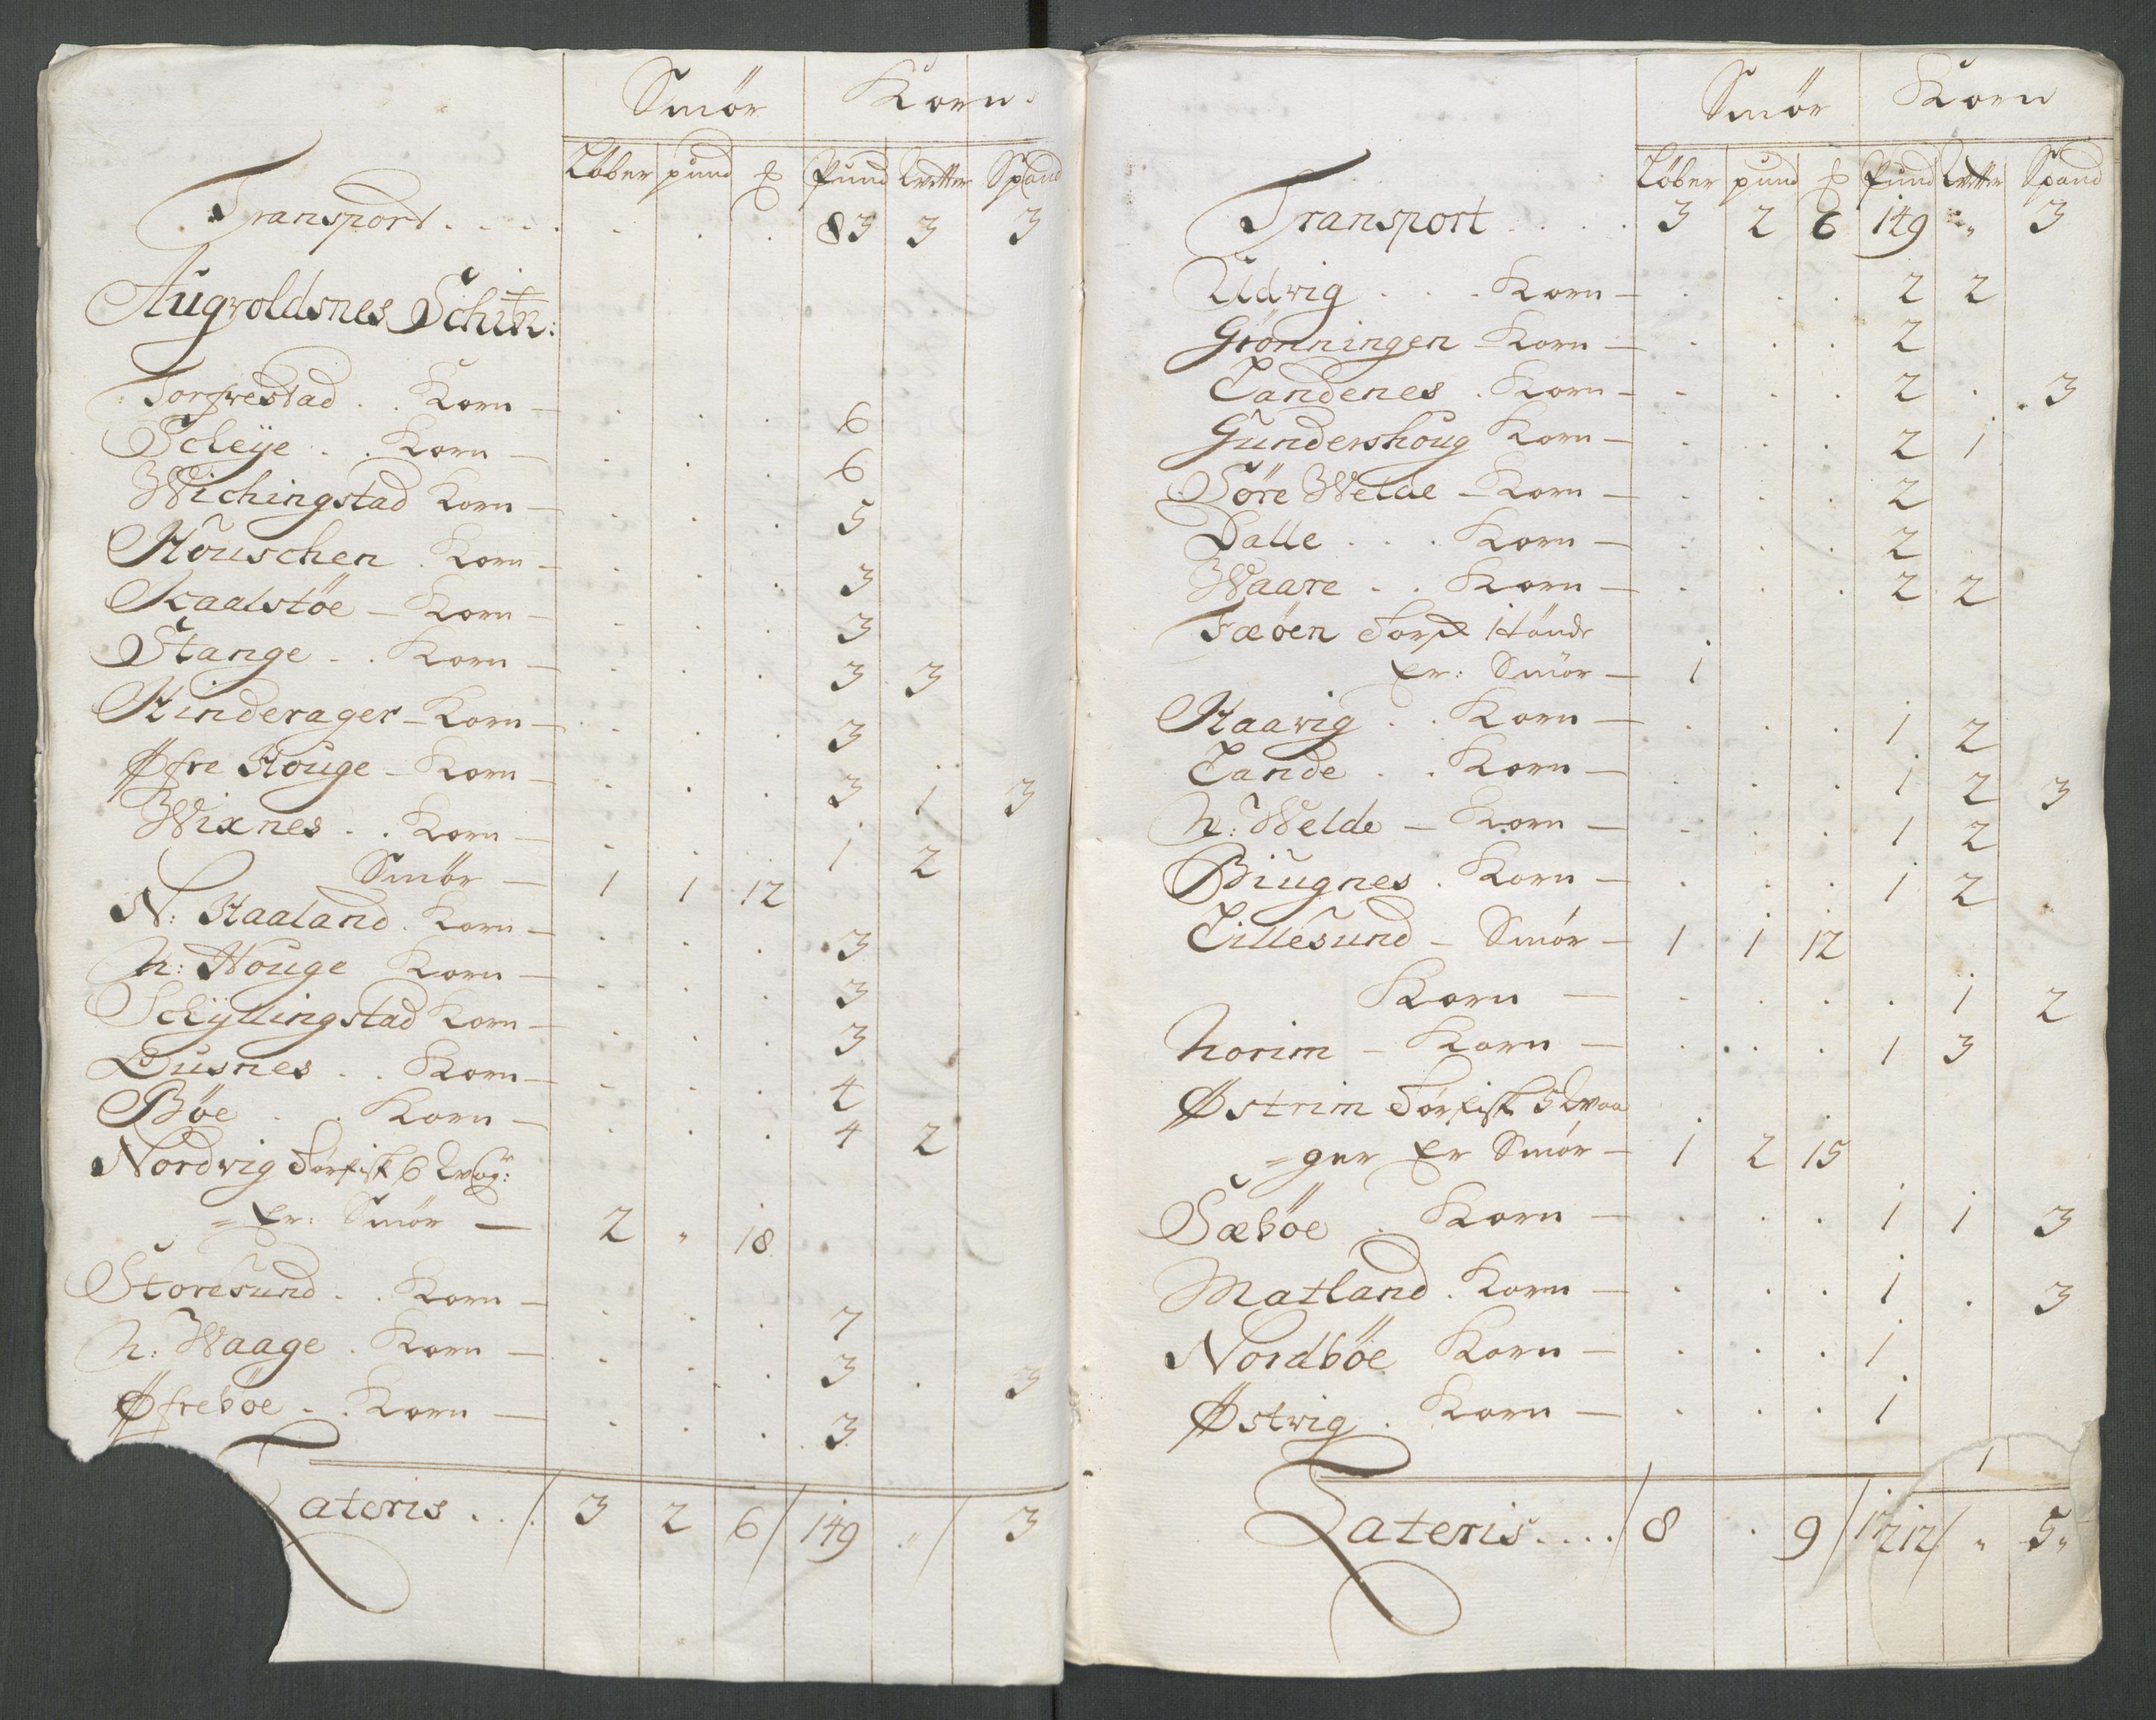 Smör Korn
Löber pund ℔ Pund Wetter Spand
Transport . . . . 83 3 3
Augvoldsnes Schib:
Torgvestad . . Korn — 6
Scleye . . Korn — 6
Wichingstad Korn — 5
Höuschen . Korn — 3
Kaalstöe — Korn — 3
Stange . . Korn — 3 3
Hinderager — Korn — 3
Øfre Houge — Korn — 3 1 3
Wixnes . . Korn — 1 2
Smör — 1 1 12
N: Haaland . Korn — 3
N: Houge Korn — 3
Schyllingstad Korn — 3
Dusnes . . Korn — 4
Böe . . Korn — 4 2
Nordvig Törfisk 6 Wog:
= Er: Smör — 2 " 18
Storesund . . Korn — 7
N: Waage . Korn — 3 . 3
Øfreböe . . Korn — 3
ateris . . / 3 2 6 / 149 " / 3
Smör Korn
Löber pund ℔ Pund Wetter Spand
Transport . . . . 3 2 6 149 " 3
Udvig . . . Korn — 2 2
Grönningen — Korn — 2
Landenes . Korn — 2 . 3
Gundershoug Korn — 2 1
Söre Welde — Korn — 2
Dalle . . . Korn — 2
Waare . . Korn — 2 2
Fæöen Torsk 1 tönde
Er: Smör — 1
Haavig . . Korn — 1 2
Lande . . Korn — 1 2 3
N: Welde — Korn — 1 2
Biugnes . Korn — 1 2
Lillesund — Smör — 1 1 12
Korn — 1 2
Norim — Korn — 1 3
Østrim Törfisk 5 Waa
= ger Er Smör — 1 2 15
Sæböe . Korn — 1 1 3
Matland . Korn — 1 . 3
Nordböe Korn — 1
Østvig . Korn — 1
1
Lateris . . . . / 8 . 9 / 1212 / " 5 "